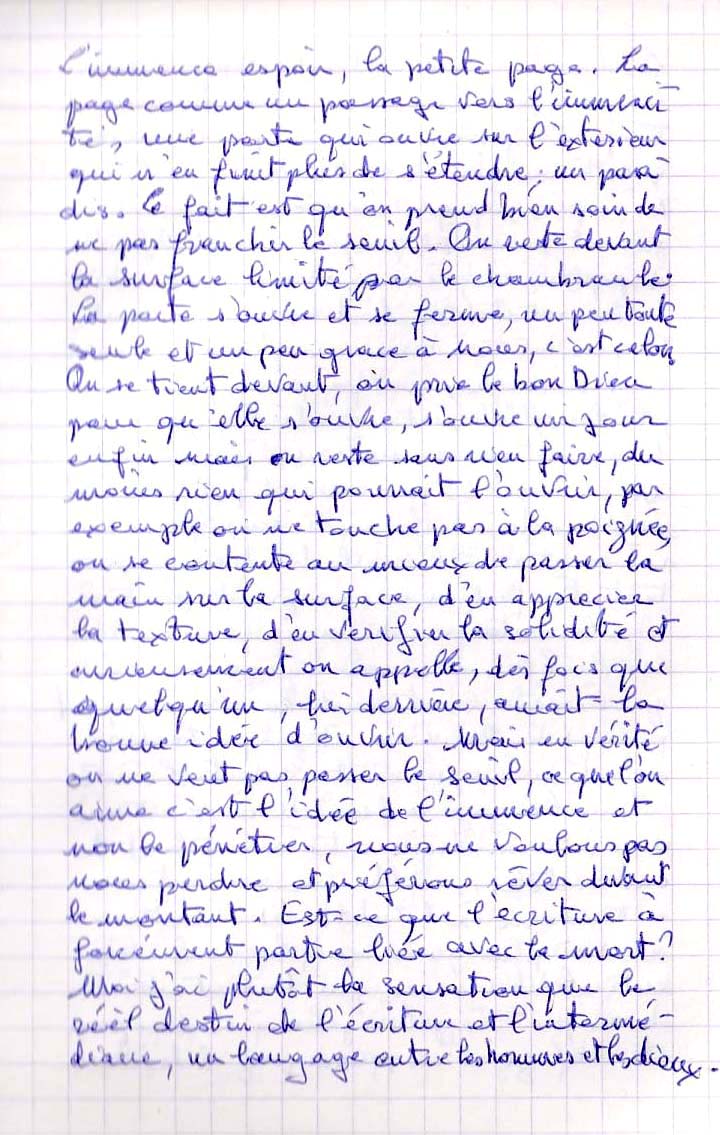 L'immence espoir, la petite page. La
page comme un passage vers l'immensi
té, une porte qui ouvre sur l'exterieur
qui n'en finit plus de s'étendre; un para
dis. Le fait est qu'on prend bien soin de
ne pas franchir le seuil. On reste devant
la surface limité par le chambranle.
La porte s'ouvre et se ferme, un peu toute
seule et un peu grace à nous, c'est selon
On se tient devant, on prie le bon Dieu
pour qu'elle s'ouvre, s'ouvre un jour
enfin mais on reste sans rien faire, du
moins rien qui pourrait l'ouvrir, par
exemple on ne touche pas à la poignée,
on se contente au mieux de passer la
main sur la surface, d'en apprecier
la texture, d'en verifier la solidité et
curieusement on appelle, dès fois que
quelqu'un, lui derrière, aurait la
bonne idée d'ouvrir. Mais en vérité
on ne veut pas passer le seuil, ce que l'on
aime c'est l'idée de l'immence et
non le pénétrer, nous ne voulons pas
nous perdre et préférons rêver devant
le montant. Est-ce que l'écriture à
forcément partie liée avec la mort?
Moi j'ai plutôt la sensation que le
réèl destin de l'écriture est l'intermé-
diaire, un langage entre les hommes et les dieux.